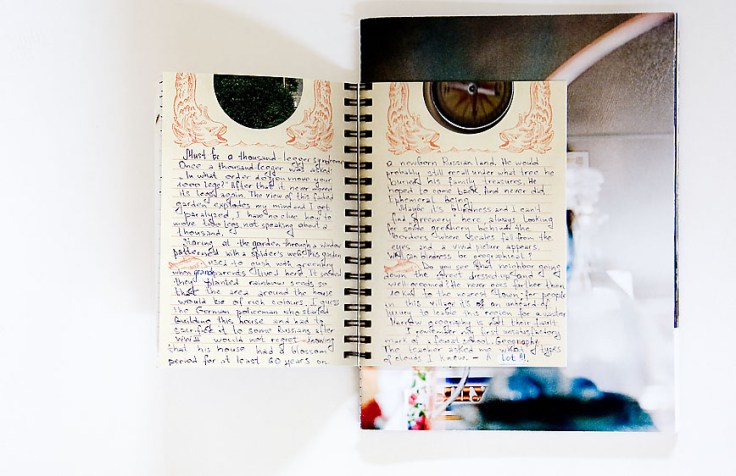 Must be a thousand-legger syndrome
Once a thousand-legger was asked:
In what order do you move your
1000 legs? After that it never moved
its legs again. The view of this faded
garden explodes my mind and I get
paralyzed, I have no clue how to
move two legs not speaking about a
thousand.
Staring at the garden through a window
patterned with a spider's web. This garden
used to gush with greenery
when grandparents lived here. It seemed
they planted rainbow seeds so
that the area around the house
would be of rich colours. I guess
the German policeman who started
building this house and had to
sacrifice it to some Russians after
WWII would not regret knowing
that his house had a blossom
period for at least 60 years on
a newborn Russian land. He would
probably still recall under what tree he
buried his family treasures. He
hoped to come back and never did.
Ephemeral being.
Maybe it's blindness and I can't
find greenery here, always looking
for some greenery behind the
borders where scales fall from the
eyes and a vivid picture appears.
Can blindness be geographical?
Do you see that neighbor going
down the street dressed up and
well-groomed? He never goes further than
to the nearest town. For people
of this village it is an unheard of
luxury to leave this region for a vacation
Narrow geography is not their fault.
I remember first unsatisfactory
mark at a local school. Geography.
The teacher asked me what types
of clouds I know. - A lot!!!